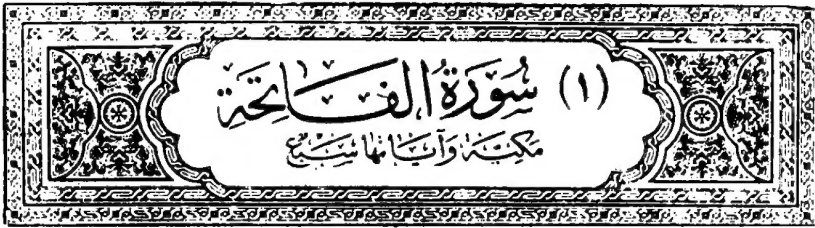 (١) سُورَةُ الفَاتِحَة
مَكِيَّة وَآيَاتُهَا سَبْعٌ